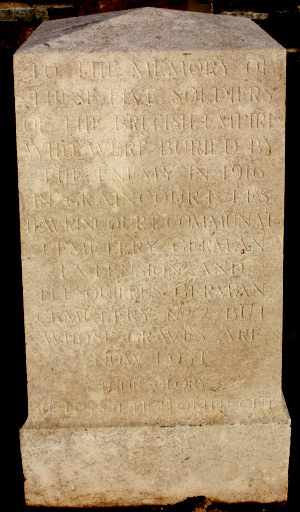 TO THE MEMORY OF
THESE FIVE SOLDIERS
OF THE BRITISH EMPIRE
WHO WERE BURIED BY
THE ENEMY IN 1916
IN GRAINCOURT-LES-
HAVRINCOURT COMMUNAL
CEMETERY GERMAN
EXTENSION AND
GERMAN
CEMETERY NO. 2 BUT
WHOSE GRAVES ARE
NOW LOST
THEIR GLORY
SHALL NOT BE BLOTTED OUT